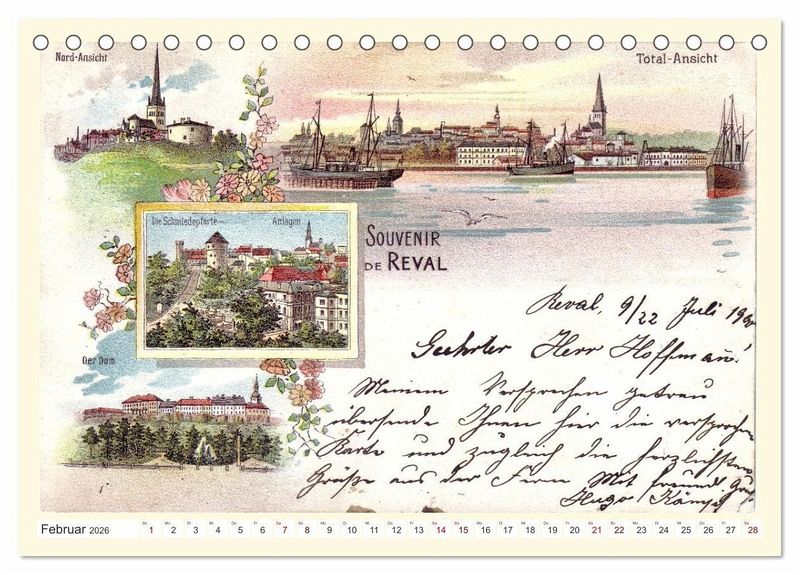 Nord-Ansicht
Total-Ansicht
Die Schmiedepforte
Anlagen
SOUVENIR
DE REVAL
Der Dom
Reval, 9/22 Juli 190
Geehrter Herr Hoffmann!
Meinem Versprechen getreu
übersende Ihnen hier die versprochene
Karte und zugleich die herzlichsten
Grüße aus der Fern Mit freundl
Hugo
Februar 2026
So Mo Di Mi Do Fr Sa So Mo Di Mi Do Fr Sa So Mo Di Mi Do Fr Sa So Mo Di Mi Do Fr Sa
1 2 3 4 5 6 7 8 9 10 11 12 13 14 15 16 17 18 19 20 21 22 23 24 25 26 27 28